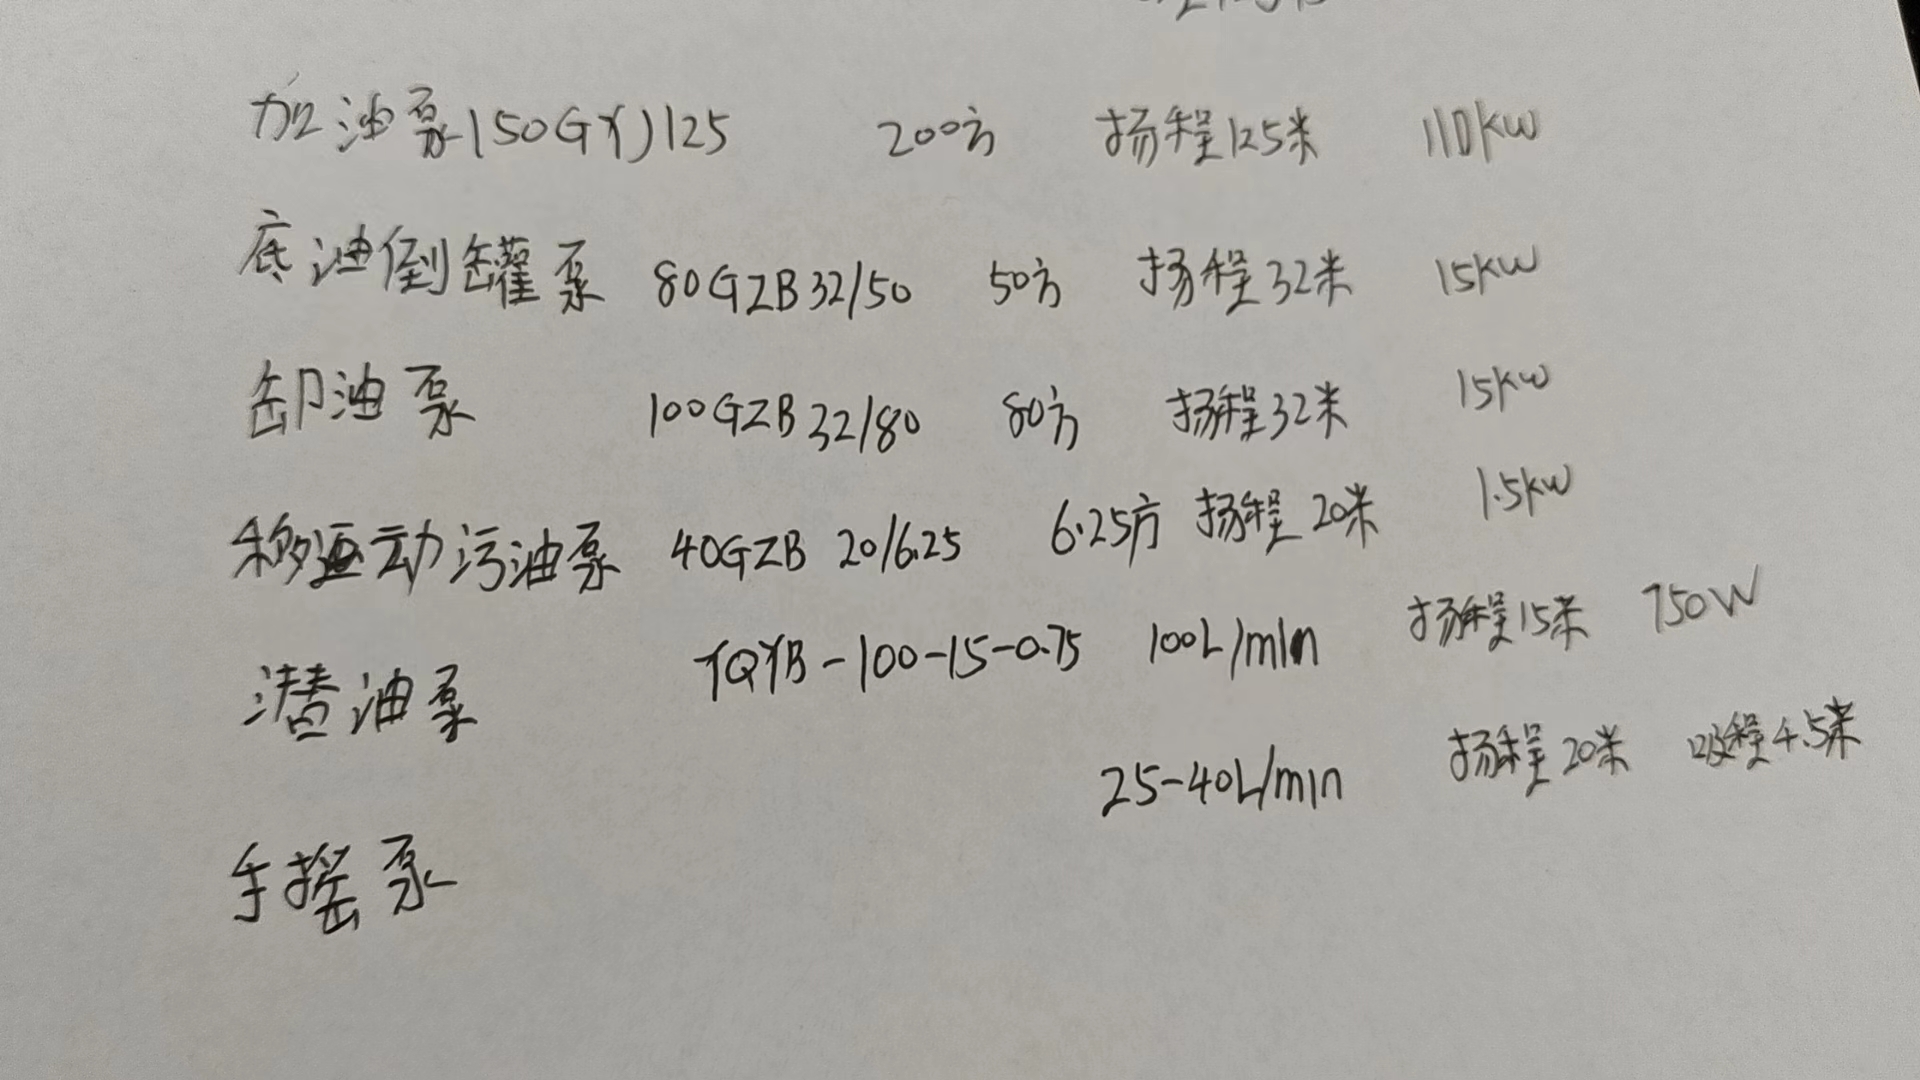 加油泵150GYJ125 200方 扬程125米 110KW
底油倒罐泵 80GZB32/50 50方 扬程32米 15KW
卸油泵 100GZB32/80 80方 扬程32米 15KW
移动污油泵 40GZB 20/6.25 6.25方 扬程20米 1.5KW
潜油泵 YQYB-100-15-0.75 100L/min 扬程15米 750W
手摇泵 25-40L/min 扬程20米 吸程4.5米